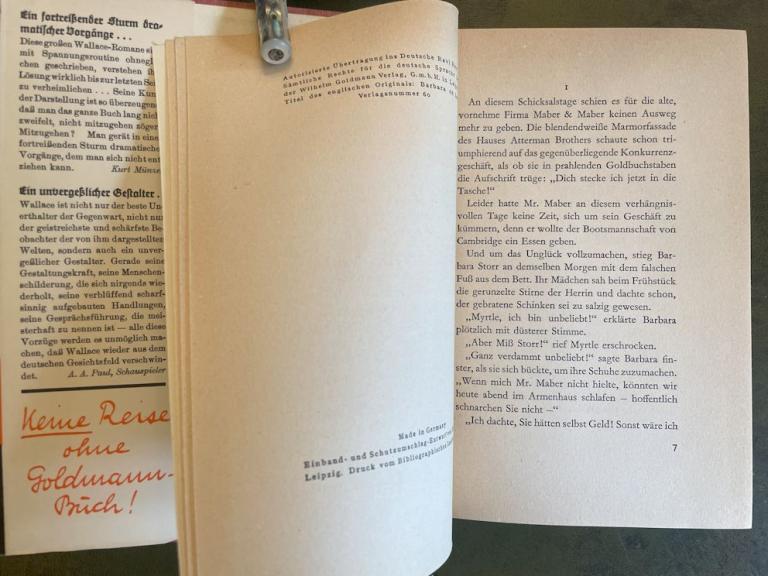 Ein fortreißender Sturm dra-
matischer Vorgänge . . .
Diese großen Wallace-Romane
mit Spannungsroutine
chen geschrieben, verstehen
Lösung wirklich bis zur letzten
zu verheimlichen . . . Seine
der Darstellung ist so überzeugen
daß man das ganze Buch lang nich
zweifelt, nicht mitzugehen zöger
Mitzugehen? Man gerät in eine
fortreißenden Sturm dramatische
Vorgänge, dem man sich nicht ent
ziehen kann. Kurt Münze
Ein unvergeßlicher Gestalter .
Wallace ist nicht nur der beste Un-
erthalter der Gegenwart, nicht nu
der geistreichste und schärfste Be-
obachter der von ihm dargestellten
Welten, sondern auch ein unver-
geßlicher Gestalter. Gerade seine
Gestaltungskraft, seine Menschen-
schilderung, die sich nirgends wie-
derholt, seine verblüffend scharf-
sinnig aufgebauten Handlungen,
seine Gesprächsführung, die mei-
sterhaft zu nennen ist — alle diese
Vorzüge werden es unmöglich ma-
chen, daß Wallace wieder aus dem
deutschen Gesichtsfeld verschwin-
det. A. A. Paul, Schauspieler
Keine Reise
ohne
Goldmann-
Buch!
Autorisierte Übertragung ins Deutsche Ravi
Sämtliche Rechte für die deutsche Sprache
der Wilhelm Goldmann Verlag, G.m.b.H. in
Titel des englischen Originals: Barbara
Verlagsnummer 60
Made in Germany
Einband- und Schutzumschlag-Entwurf
Leipzig. Druck vom Bibliographischen
I
An diesem Schicksalstage schien es für die alte,
vornehme Firma Maber & Maber keinen Ausweg
mehr zu geben. Die blendendweiße Marmorfassade
des Hauses Atterman Brothers schaute schon tri-
umphierend auf das gegenüberliegende Konkurrenz-
geschäft, als ob sie in prahlenden Goldbuchstaben
die Aufschrift trüge: „Dich stecke ich jetzt in die
Tasche!“
Leider hatte Mr. Maber an diesem verhängnis-
vollen Tage keine Zeit, sich um sein Geschäft zu
kümmern, denn er wollte der Bootsmannschaft von
Cambridge ein Essen geben.
Und um das Unglück vollzumachen, stieg Bar-
bara Storr an demselben Morgen mit dem falschen
Fuß aus dem Bett. Ihr Mädchen sah beim Frühstück
die gerunzelte Stirne der Herrin und dachte schon,
der gebratene Schinken sei zu salzig gewesen.
„Myrtle, ich bin unbeliebt!“ erklärte Barbara
plötzlich mit düsterer Stimme.
„Aber Miß Storr!“ rief Myrtle erschrocken.
„Ganz verdammt unbeliebt!“ sagte Barbara fin-
ster, als sie sich bückte, um ihre Schuhe zuzumachen.
„Wenn mich Mr. Maber nicht hielte, könnten wir
heute abend im Armenhaus schlafen — hoffentlich
schnarchen Sie nicht —“
„Ich dachte, Sie hätten selbst Geld! Sonst wäre ich
7